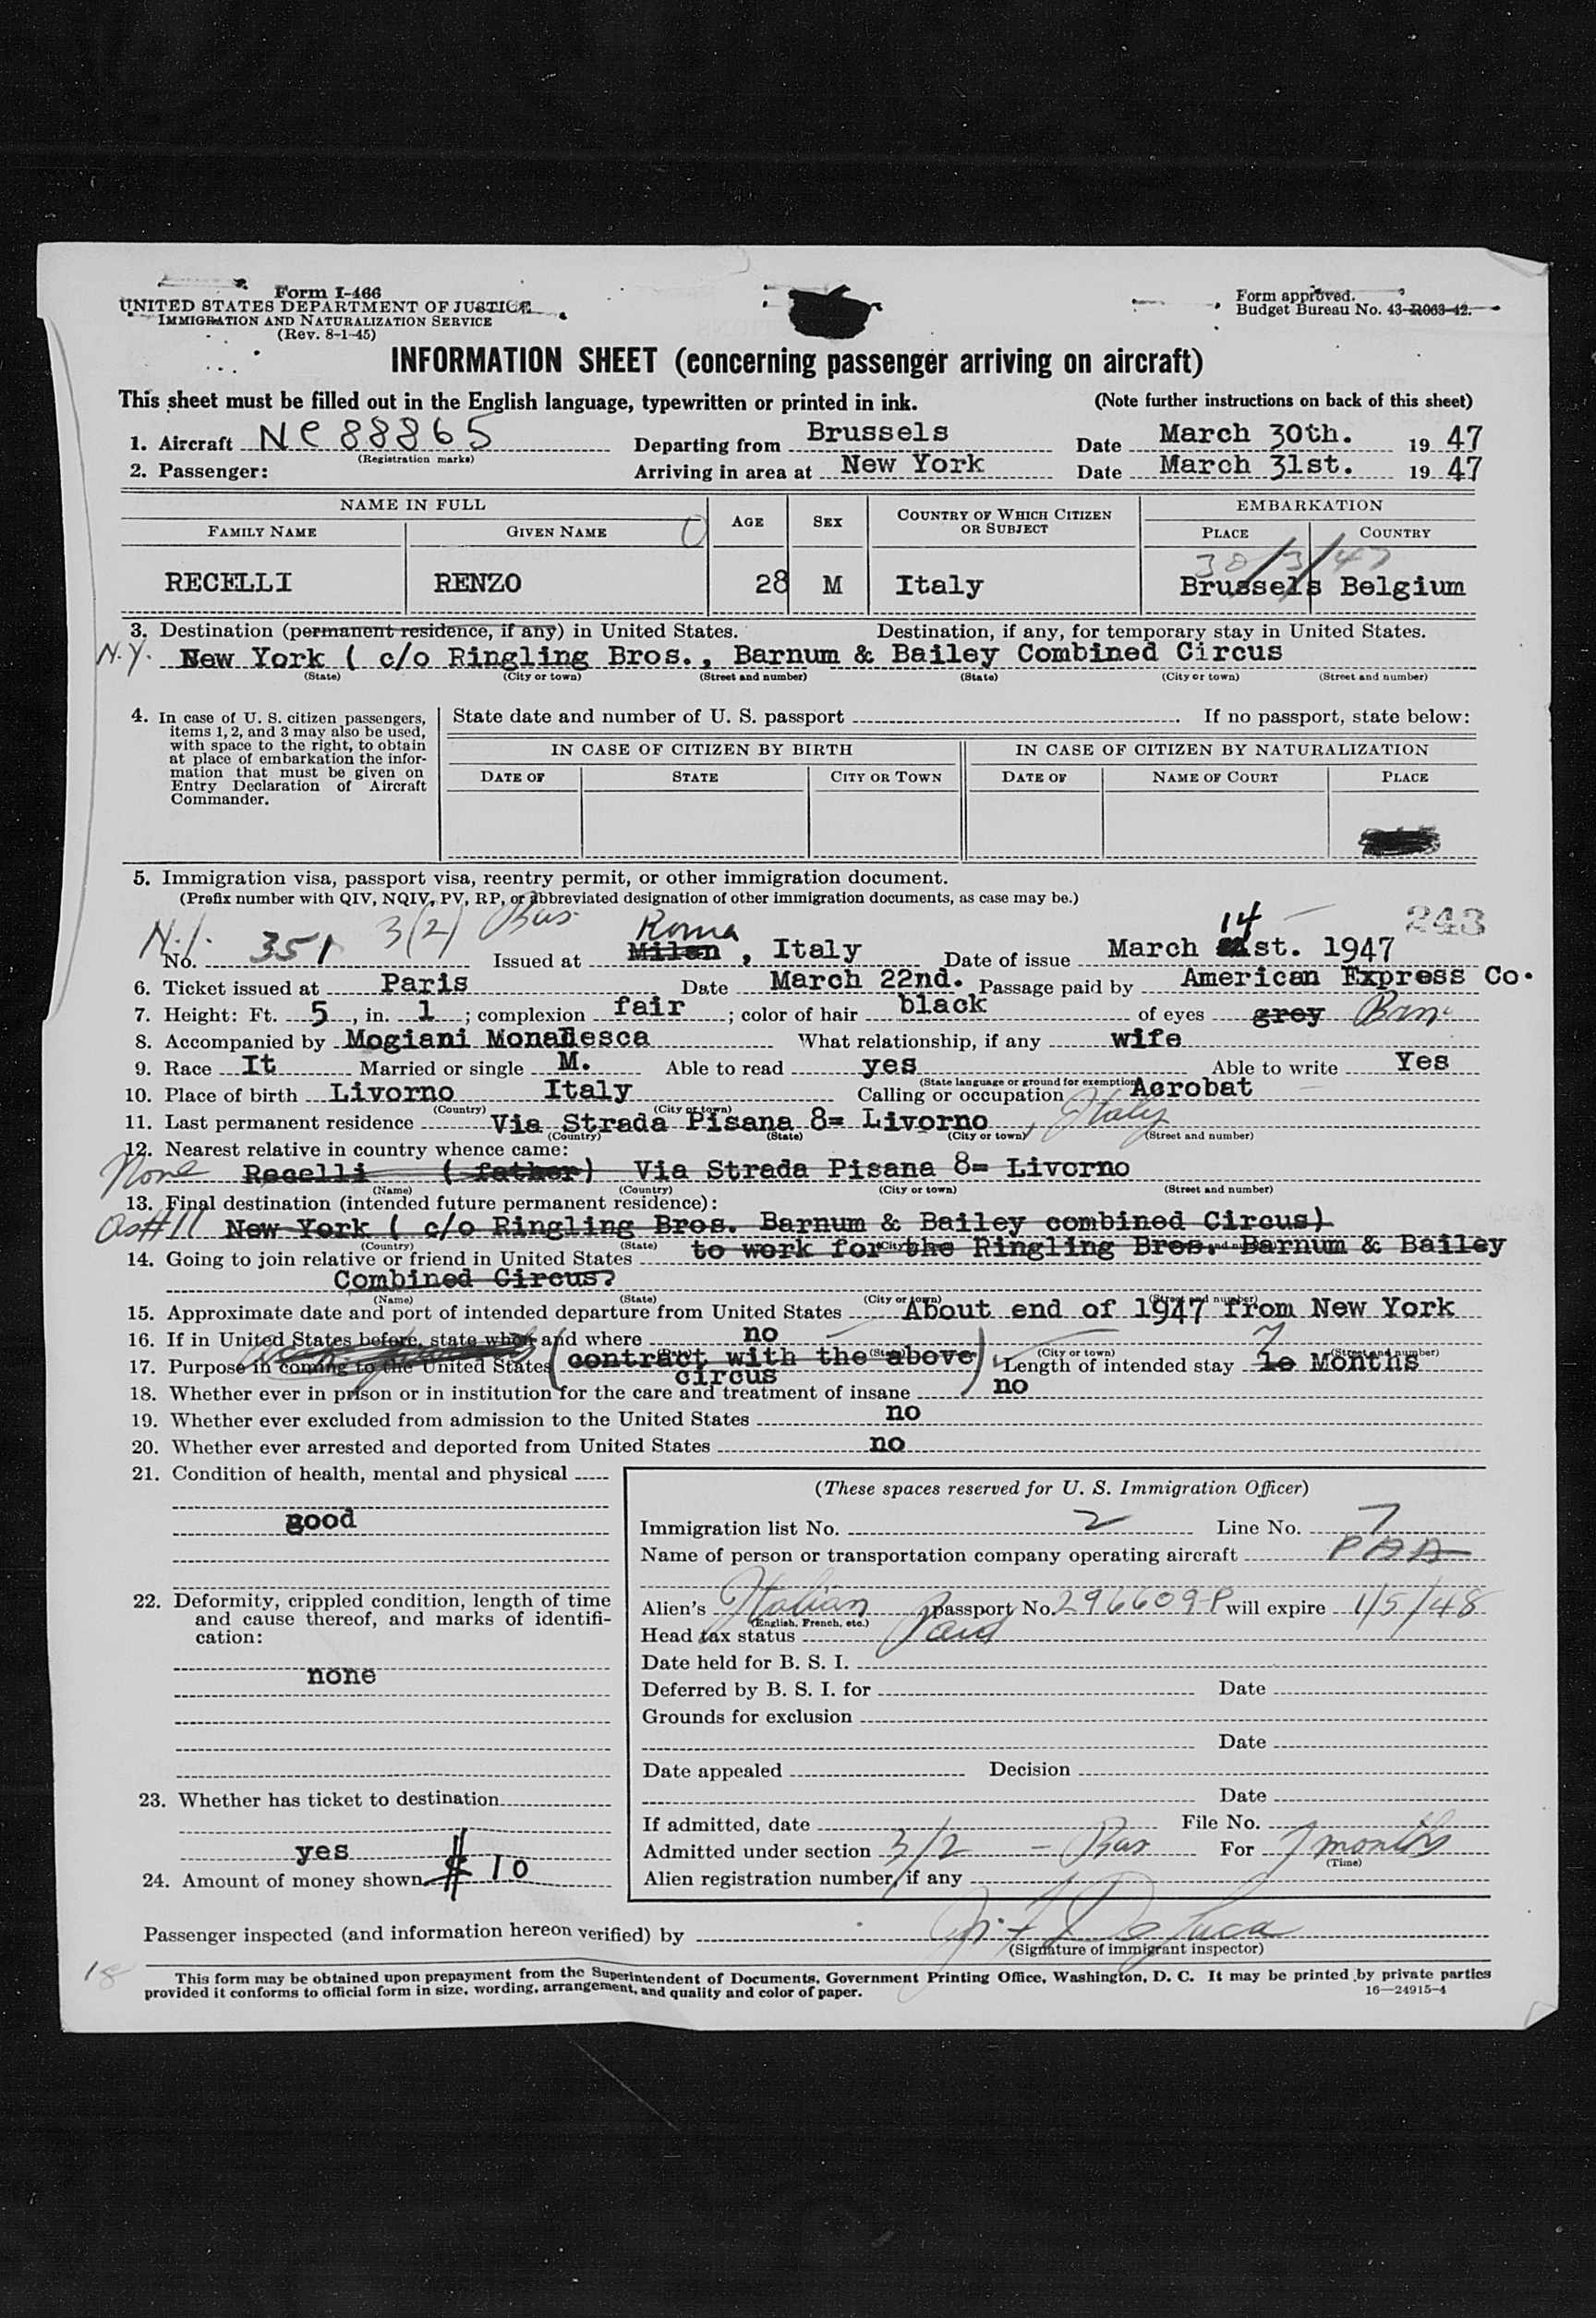 Form I-466
UNITED STATES DEPARTMENT OF JUSTICE
IMMIGRATION AND NATURALIZATION SERVICE
(Rev. 8-1-45)
Form approved.
Budget Bureau No. 43-R063-42.
INFORMATION SHEET (concerning passenger arriving on aircraft)
This sheet must be filled out in the English language, typewritten or printed in ink. (Note further instructions on back of this sheet)
1. Aircraft NC 88865 Departing from Brussels Date March 30th. 19 47
(Registration marks)
2. Passenger: Arriving in area at New York Date March 31st. 19 47
NAME IN FULL AGE SEX COUNTRY OF WHICH CITIZEN OR SUBJECT EMBARKATION
FAMILY NAME GIVEN NAME PLACE COUNTRY
30/3/47
RECELLI RENZO 28 M Italy Brussels Belgium
3. Destination (permanent residence, if any) in United States. Destination, if any, for temporary stay in United States.
N.Y. New York ( c/o Ringling Bros., Barnum & Bailey Combined Circus
(State) (City or town) (Street and number) (State) (City or town) (Street and number)
4. In case of U. S. citizen passengers, items 1, 2, and 3 may also be used, with space to the right, to obtain at place of embarkation the information that must be given on Entry Declaration of Aircraft Commander.
State date and number of U. S. passport . If no passport, state below:
IN CASE OF CITIZEN BY BIRTH IN CASE OF CITIZEN BY NATURALIZATION
DATE OF STATE CITY OR TOWN DATE OF NAME OF COURT PLACE
5. Immigration visa, passport visa, reentry permit, or other immigration document.
(Prefix number with QIV, NQIV, PV, RP, or abbreviated designation of other immigration documents, as case may be.)
3(2) Bus. Roma 14 243
No. 351 Issued at Milan , Italy Date of issue March st. 1947
6. Ticket issued at Paris Date March 22nd. Passage paid by American Express Co.
7. Height: Ft. 5, in. 1; complexion fair; color of hair black of eyes grey Brn.
8. Accompanied by Mogiani Monadesca What relationship, if any wife
9. Race It Married or single M. Able to read yes Able to write Yes
(State language or ground for exemption)
10. Place of birth Livorno Italy Calling or occupation Acrobat
(Country) (City or town)
11. Last permanent residence Via Strada Pisana 8= Livorno, Italy
(Country) (State) (City or town) (Street and number)
12. Nearest relative in country whence came:
None Recelli ( father) Via Strada Pisana 8= Livorno
(Name) (Country) (City or town) (Street and number)
13. Final destination (intended future permanent residence):
as #11 New York ( c/o Ringling Bros. Barnum & Bailey combined Circus)
(Country) (State)
14. Going to join relative or friend in United States to work for the Ringling Bros. Barnum & Bailey
Combined Circus?
(Name) (State) (City or town) (Street and number)
15. Approximate date and port of intended departure from United States About end of 1947 from New York
16. If in United States before, state when and where no
(State) (City or town) (Street and number)
17. Purpose in coming to the United States (contract with the above circus) Length of intended stay 10 7 Months
18. Whether ever in prison or in institution for the care and treatment of insane no
19. Whether ever excluded from admission to the United States no
20. Whether ever arrested and deported from United States no
21. Condition of health, mental and physical
good
22. Deformity, crippled condition, length of time and cause thereof, and marks of identification:
none
23. Whether has ticket to destination
yes
24. Amount of money shown $ 10
(These spaces reserved for U. S. Immigration Officer)
Immigration list No. 2 Line No. 7
Name of person or transportation company operating aircraft PAA
Alien's Italian passport No. 296609-P will expire 1/5/48
(English, French, etc.)
Head tax status Paid
Date held for B. S. I.
Deferred by B. S. I. for Date
Grounds for exclusion
Date
Date appealed Decision
Date
If admitted, date File No.
Admitted under section 3/2 - Bus For 7 months
(Time)
Alien registration number, if any
Passenger inspected (and information hereon verified) by
(Signature of immigrant inspector)
18
This form may be obtained upon prepayment from the Superintendent of Documents, Government Printing Office, Washington, D. C. It may be printed by private parties
provided it conforms to official form in size, wording, arrangement, and quality and color of paper. 16—24915-4